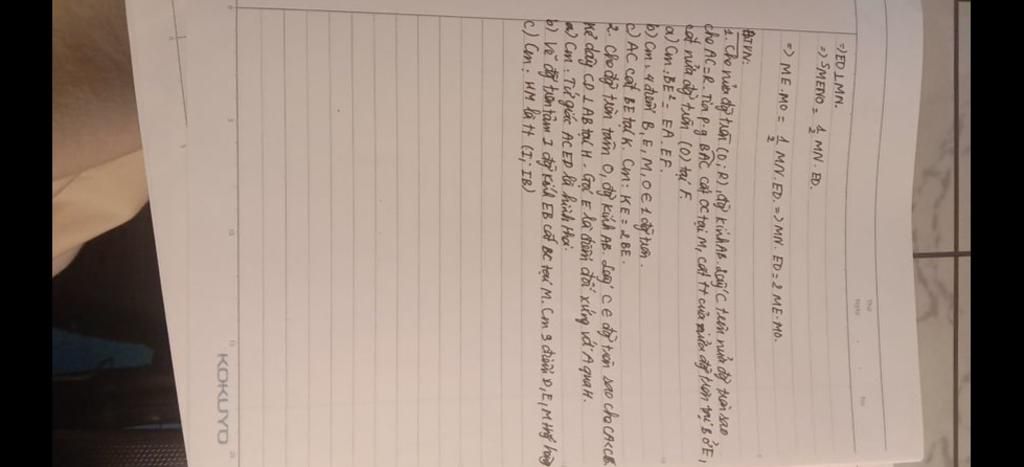 => ED ⊥ MN.
=> SMENO = 1/2 MN. ED.
=> ME. MO = 1/2 MN. ED. => MN. ED = 2 ME. MO.
BTVN:
1. Cho nửa đg tròn (O; R), đg kính AB. Lấy C trên nửa đg tròn sao
cho AC = R. Tia p.g BAC cắt OC tại M, cắt tt của nửa đg tròn tại B ở E,
cắt nửa đg tròn (O) tại F.
a) Cm: BE² = EA. EF.
b) Cm: 4 điểm B, E, M, O ∈ 1 đg tròn.
c) AC cắt BE tại K. Cm: KE = 2BE.
2. Cho đg tròn tâm O, đg kính AB. Lấy C ∈ đg tròn sao cho CA<CB.
Kẻ dây CD ⊥ AB tại H. Gọi E là điểm đối xứng với A qua H.
a) Cm: Tứ giác ACED là hình thoi.
b) Vẽ đg tròn tâm I đg kính EB cắt BC tại M. Cm 3 điểm D, E, M thg hàng
c) Cm: HM là tt (I; IB)
KOKUYO